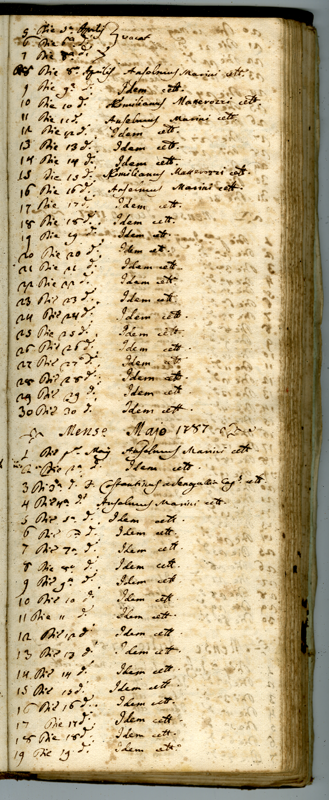 5 Die 5ª Aprilis
6 Die 6ª d. vacat
7 Die 7ª d.
8 Die 8ª Aprilis Anselmus Marini cett.
9 Die 9ª d. Idem cett.
10 Die 10 d. Marcrozzi cett.
11 Die 11 d. Anselmus Marini cett.
12 Die 12 d. Idem cett.
13 Die 13 d. Idem cett.
14 Die 14 d. Idem cett.
15 Die 15 d. Marcrozzi cett.
16 Die 16 d. Anselmus Marini cett.
17 Die 17 d. Idem cett.
18 Die 18 d. Idem cett.
19 Die 19 d. Idem cett.
20 Die 20 d. Idem cett.
21 Die 21 d. Idem cett.
22 Die 22 d. Idem cett.
23 Die 23 d. Idem cett.
24 Die 24 d. Idem cett.
25 Die 25 d. Idem cett.
26 Die 26 d. Idem cett.
27 Die 27 d. Idem cett.
28 Die 28 d. Idem cett.
29 Die 29 d. Idem cett.
30 Die 30 d. Idem cett.
Mense Majo 1787
1 Die Maij Anselmus Marini cett.
2 Die 2ª d. Idem cett.
3 Die 3ª d. F. Costantinus cett.
4 Die 4ª d. Anselmus Marini cett.
5 Die 5ª d. Idem cett.
6 Die 6ª d. Idem cett.
7 Die 7ª d. Idem cett.
8 Die 8ª d. Idem cett.
9 Die 9ª d. Idem cett.
10 Die 10 d. Idem cett.
11 Die 11 d. Idem cett.
12 Die 12 d. Idem cett.
13 Die 13 d. Idem cett.
14 Die 14 d. Idem cett.
15 Die 15 d. Idem cett.
16 Die 16 d. Idem cett.
17 Die 17 d. Idem cett.
18 Die 18 d. Idem cett.
19 Die 19 d. Idem cett.